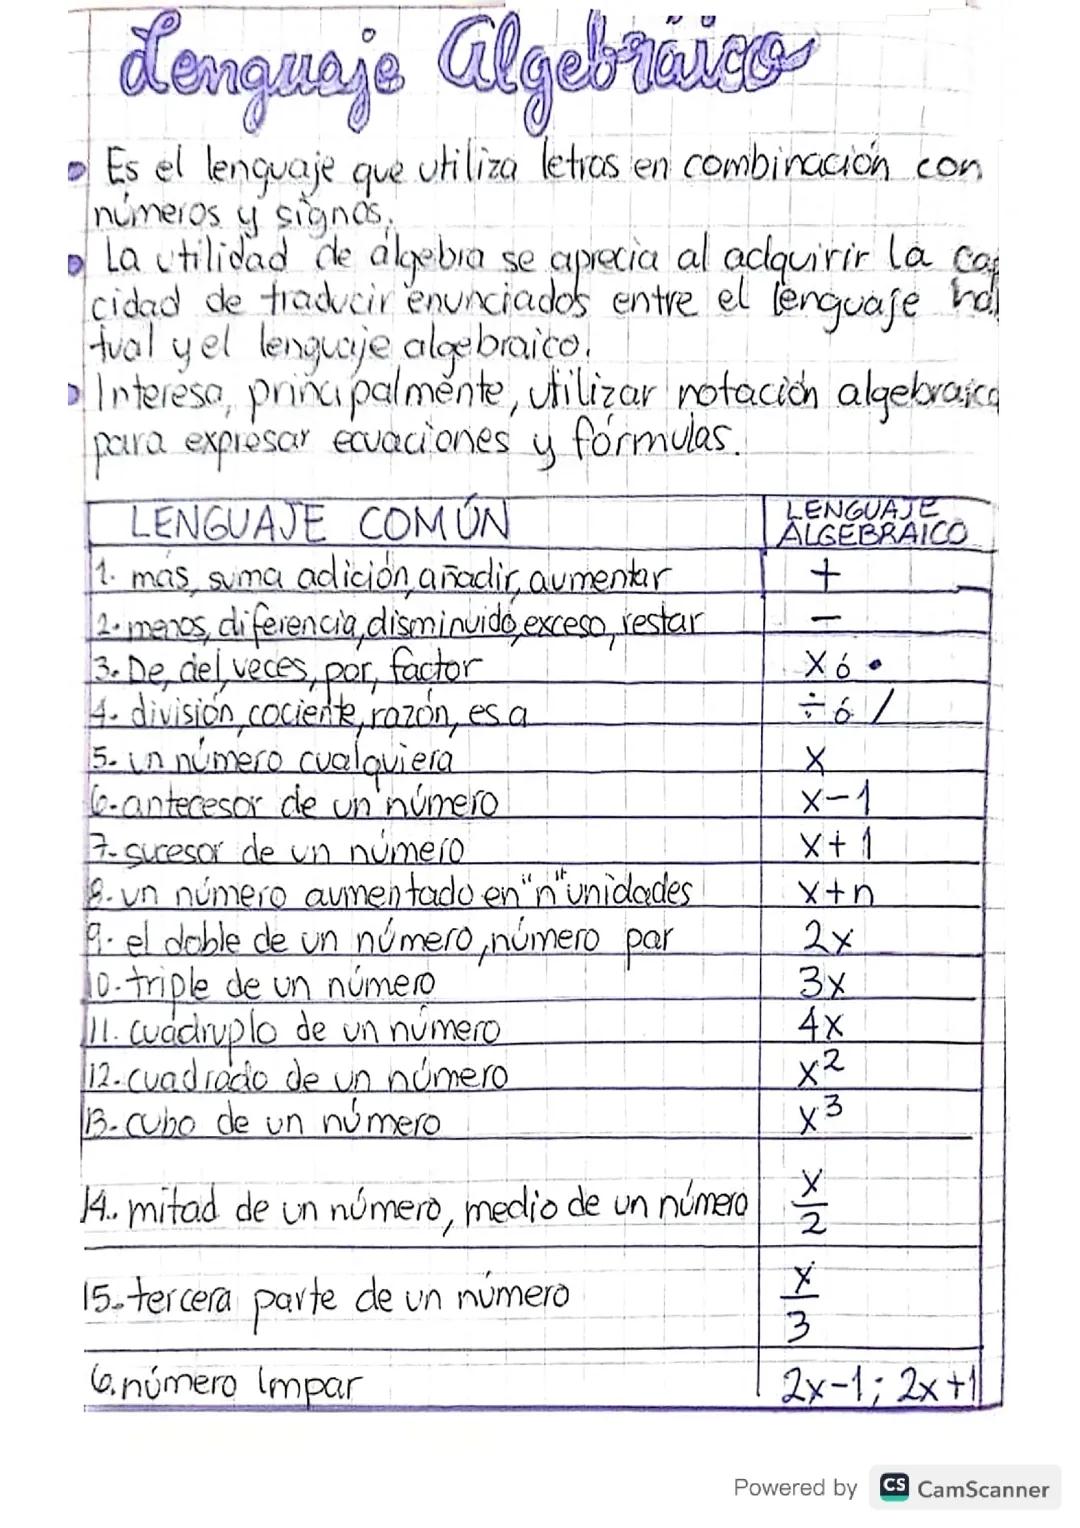 Lenguaje Algebráico
Es el lenguaje que utiliza letras en combinación con
números y signos.
La utilidad de álgebra se aprecia al adquirir la cap
cidad de traducir enunciados entre el lenguaje ha
tual y el lenguaje algebraico.
Interesa, principalmente, utilizar notación algebraica
para expresar ecuaciones y fórmulas.
LENGUAJE COMÚN
LENGUAJE
ALGEBRAICO
1. más, suma adición, añadir, aumentar +
2. menos, diferencia, disminuido, exceso, restar −
3. De, del, veces, por, factor X ó •
4. división, cociente, razón, es a ÷ ó /
5. un número cualquiera X
6. antecesor de un número x−1
7. sucesor de un número x+1
8. un número aumentado en "n" unidades x+n
9. el doble de un número, número par 2x
10. triple de un número 3x
11. cuádruplo de un número 4x
12. cuadrado de un número x²
13. cubo de un número x³
14. mitad de un número, medio de un número x/2
15. tercera parte de un número x/3
6. número Impar 2x−1; 2x+1
Powered by CS CamScanner